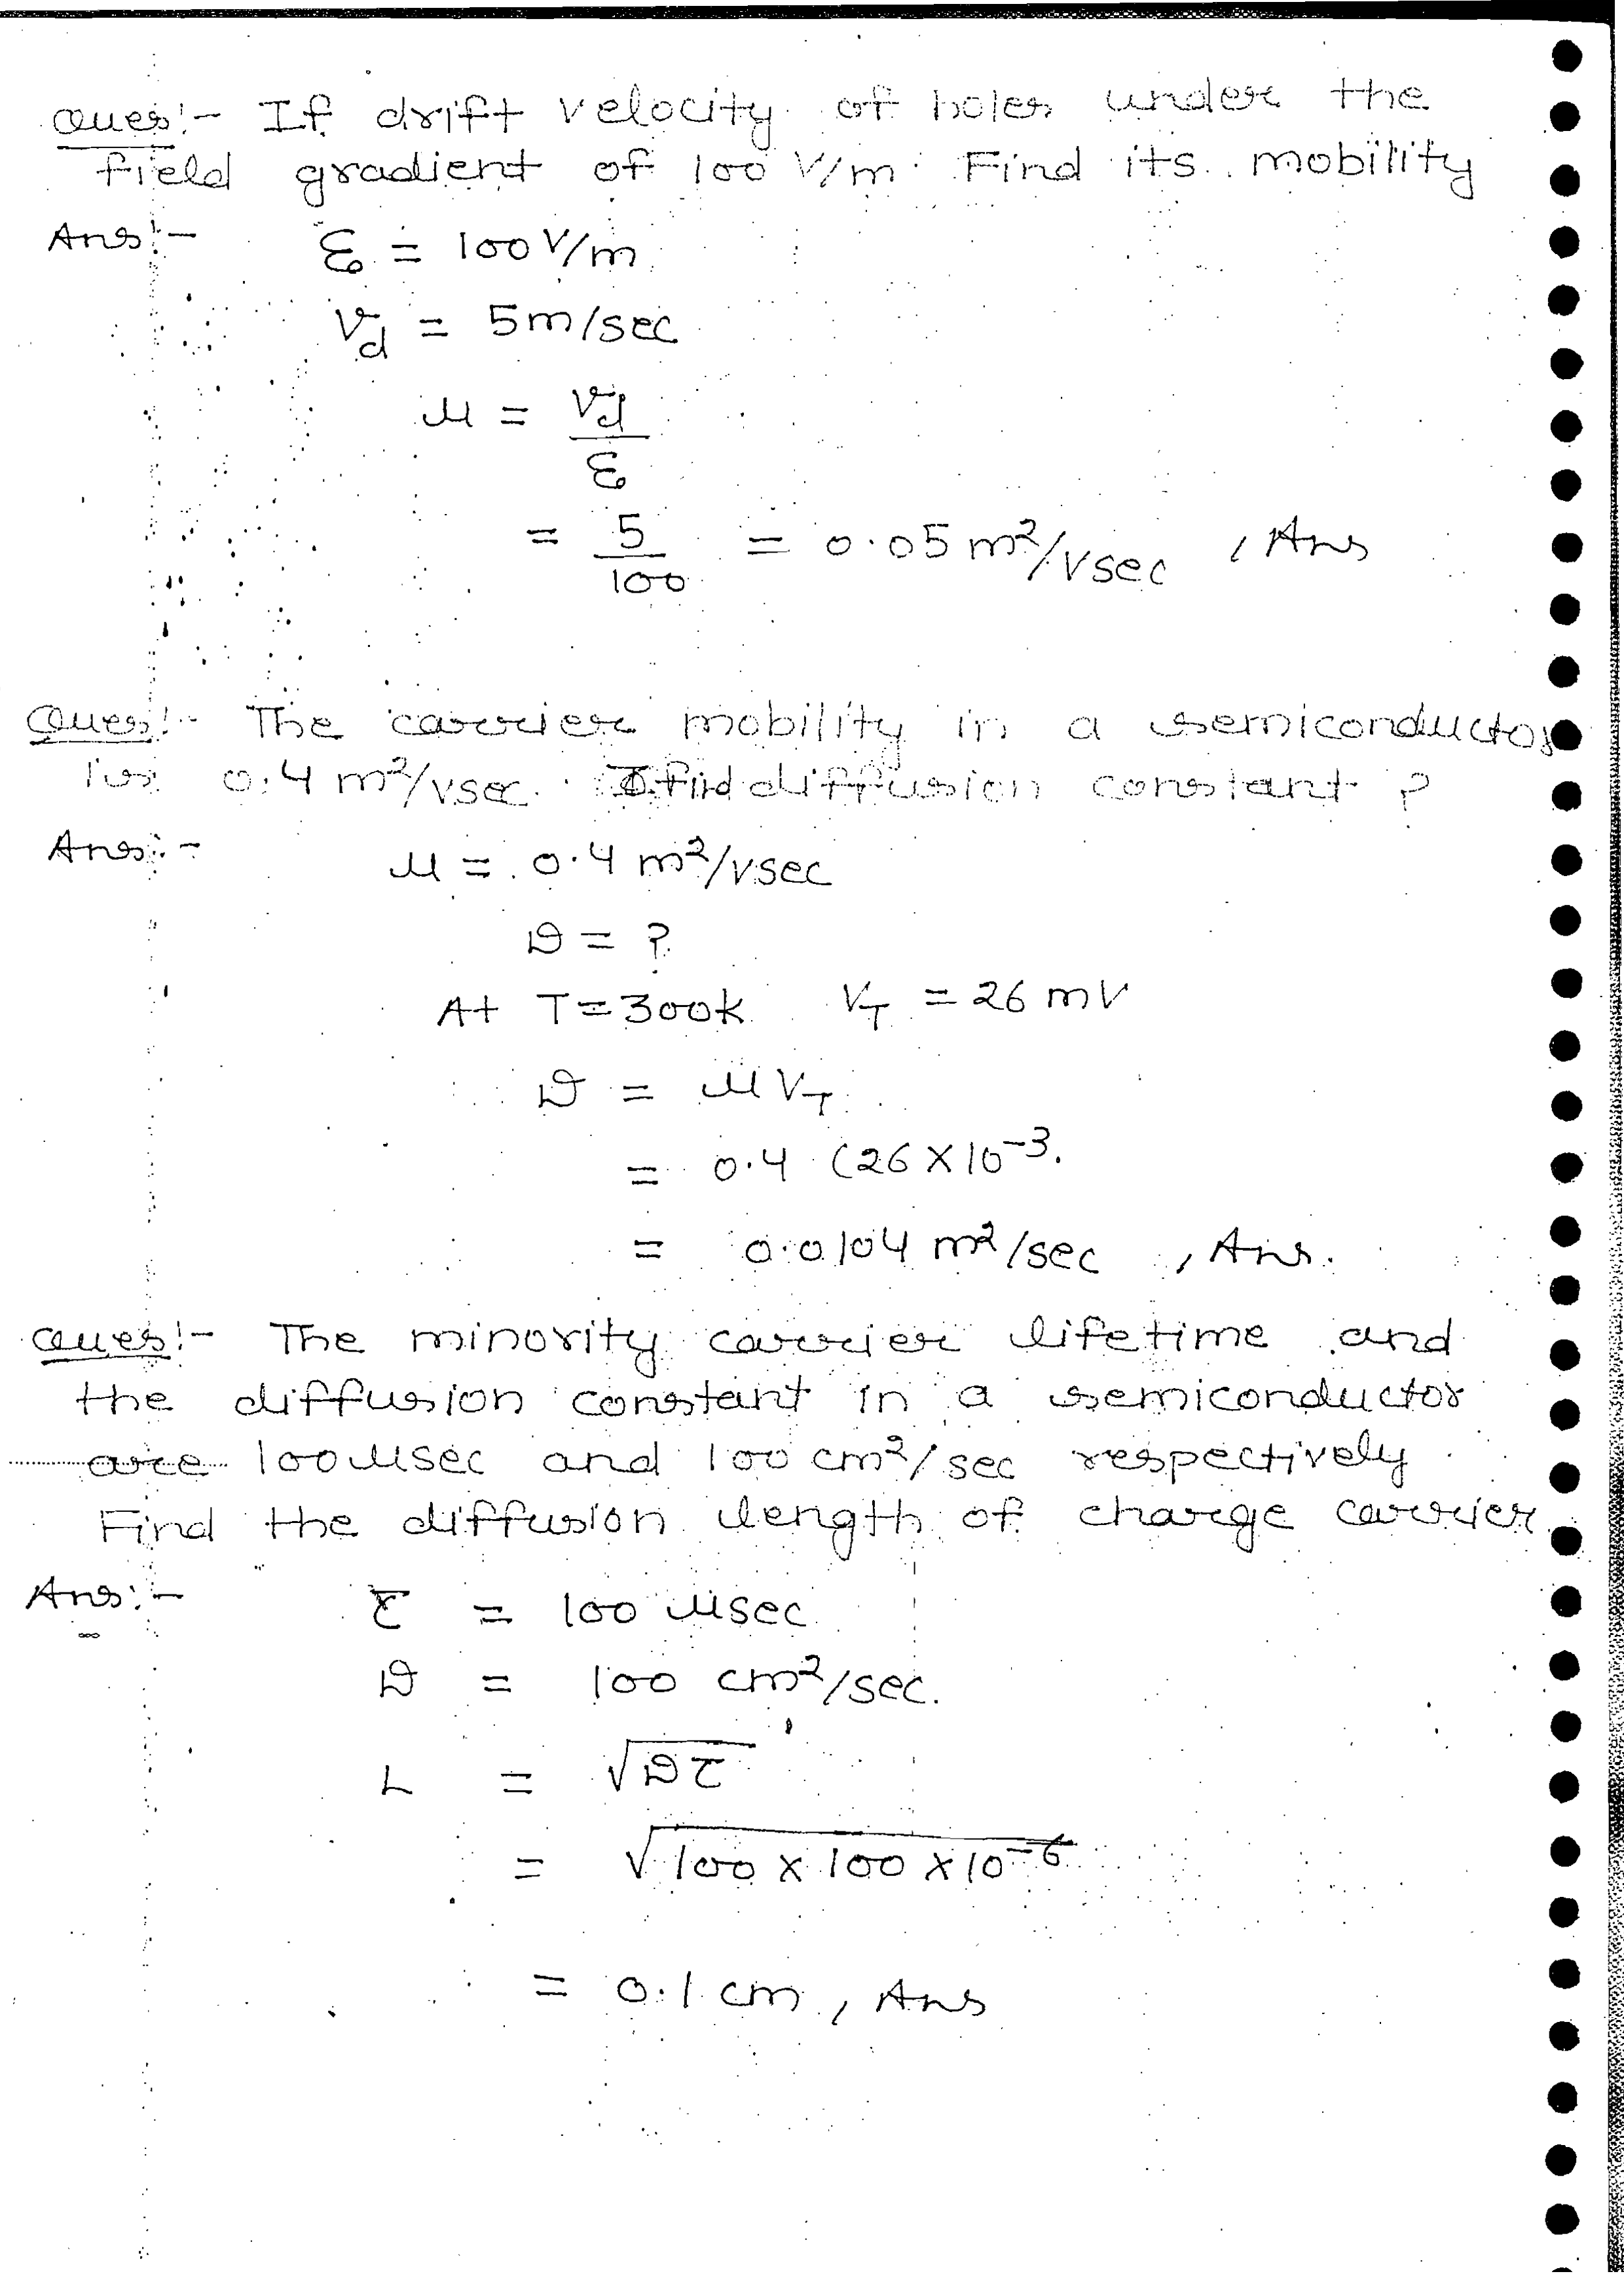 Ques:- If drift velocity of holes under the
field gradient of 100 V/m. Find its mobility
Ans:- ε = 100 V/m
Vd = 5m/sec
μ = Vd/ε
= 5/100 = 0.05 m²/Vsec , Ans
Ques:- The carrier mobility in a semiconductor
is 0.4 m²/vsec. find diffusion constant ?
Ans:- μ = 0.4 m²/vsec
D = ?
At T=300k VT = 26 mV
D = μVT
= 0.4 (26×10⁻³.
= 0.0104 m²/sec , Ans.
Ques:- The minority carrier lifetime and
the diffusion constant in a semiconductor
are 100μsec and 100 cm²/sec respectively.
Find the diffusion length of charge carrier.
Ans:- τ = 100 μsec
D = 100 cm²/sec.
L = √Dτ
= √100 × 100 × 10⁻⁶
= 0.1 cm , Ans